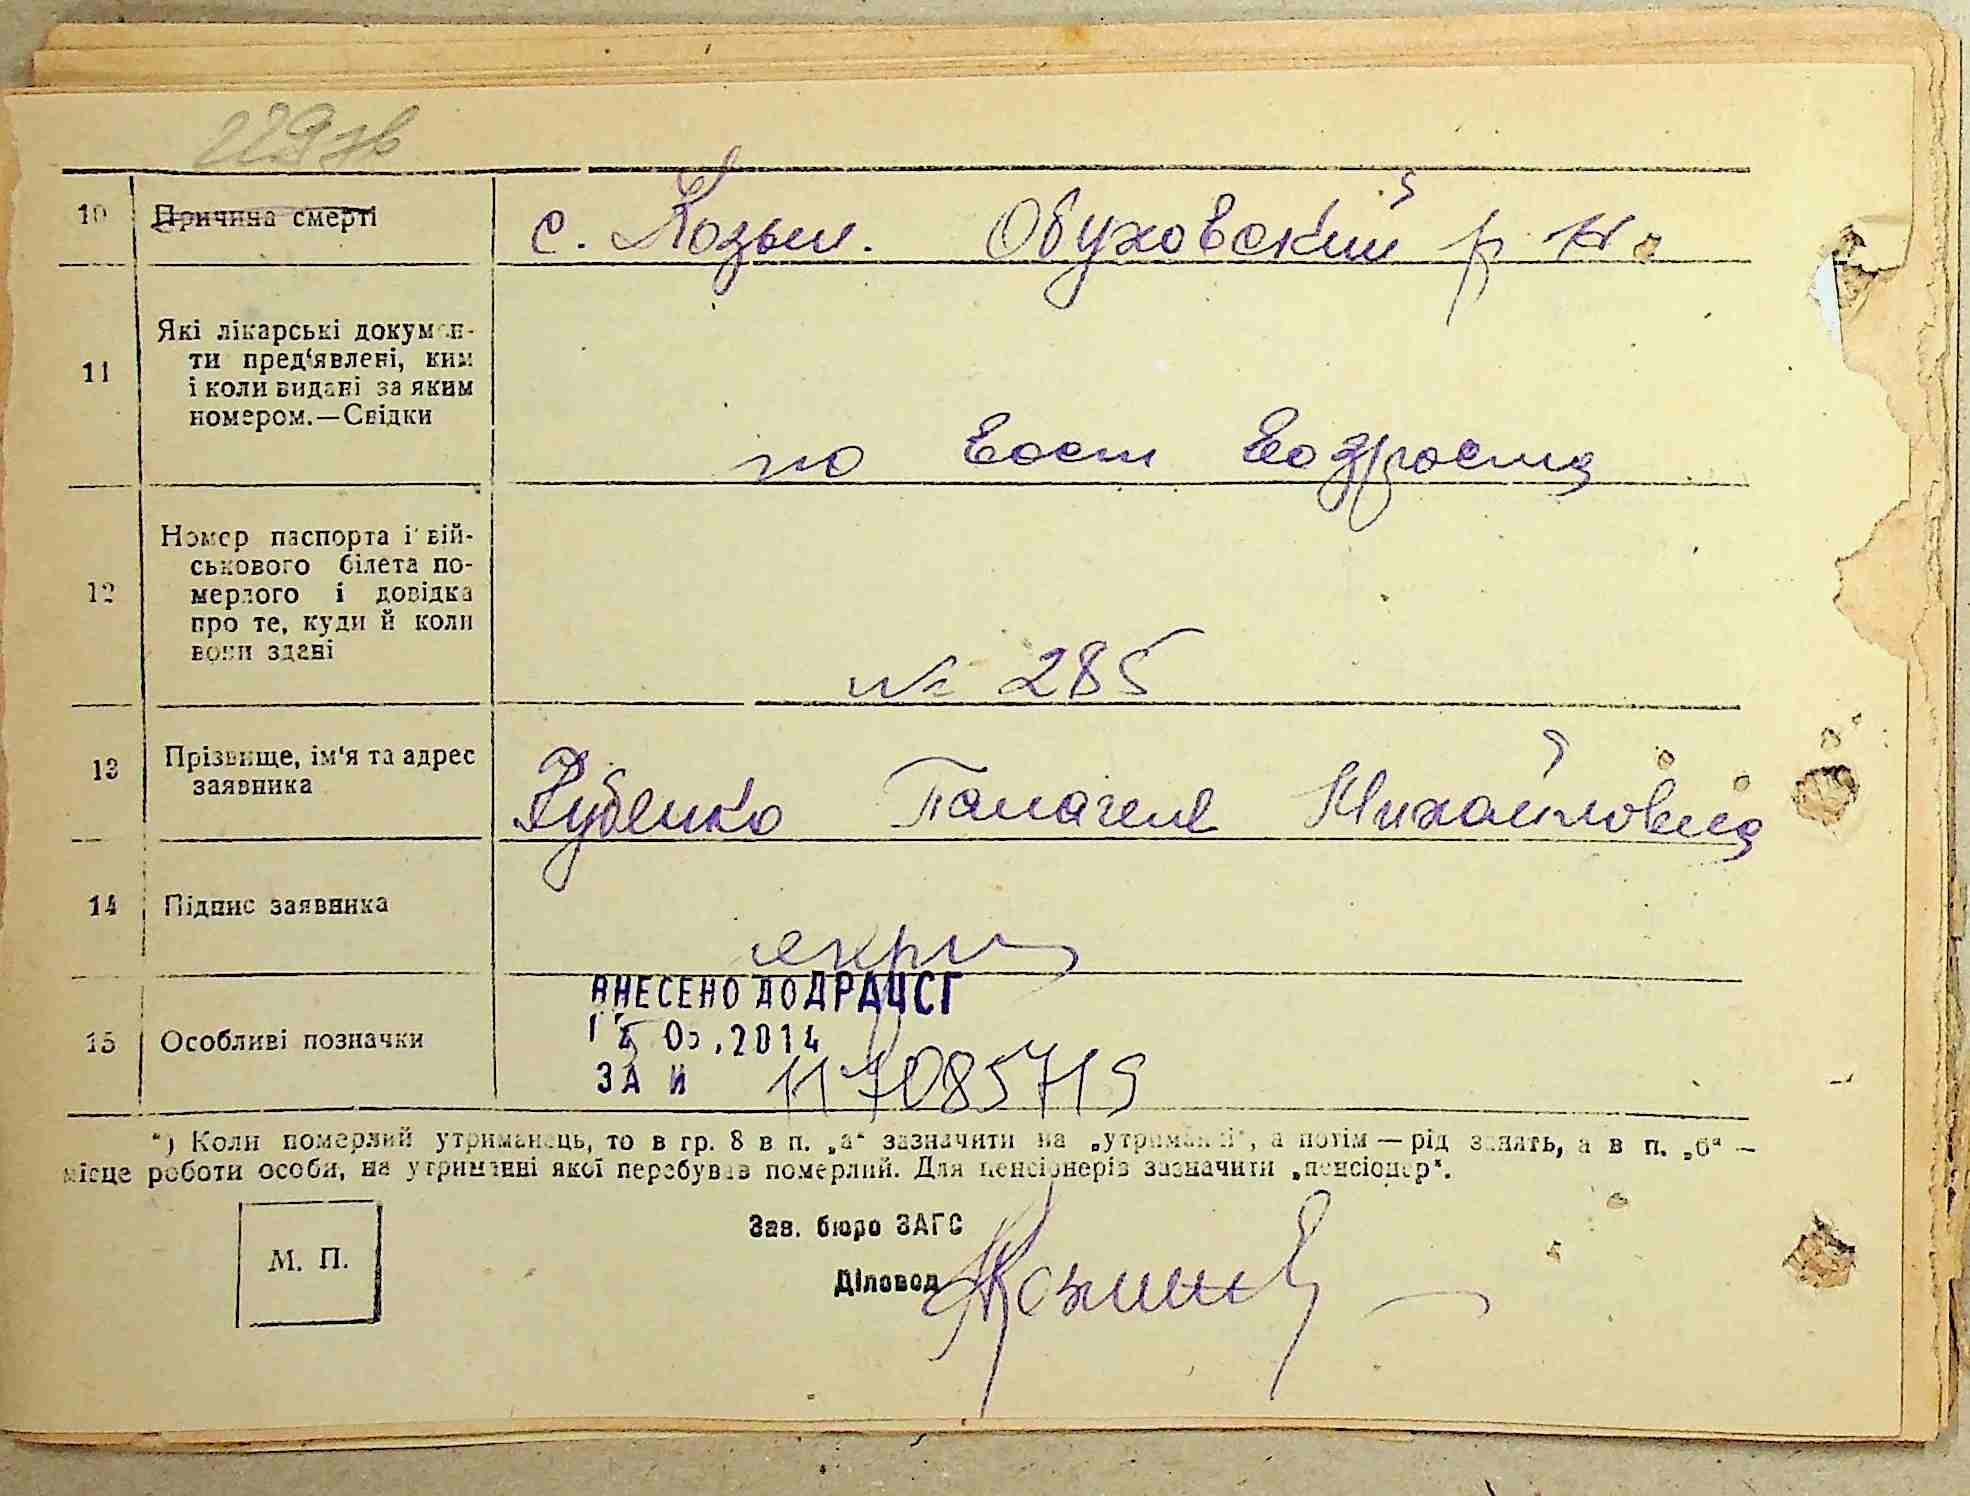 229зв
10 Причина смерті с. Козын. Обуховский р-н
11 Які лікарські докумен-
ти пред'явлені, ким
і коли видані за яким
номером.—Свідки
по вост возроста
12 Номер паспорта і вій-
ськового білета по-
мерлого і довідка
про те, куди й коли
вони здані
№ 285
13 Прізвище, ім'я та адрес
заявника
Михайловна
14 Підпис заявника
15 Особливі позначки
ВНЕСЕНО ДО ДРАЦСГ
05.2014
ЗА № 117085719
*) Коли померлий утриманець, то в гр. 8 в п. „а“ зазначити на „утриманні“, а потім — рід занять, а в п. „б“ —
місце роботи особи, на утриманні якої перебував померлий. Для пенсіонерів зазначити „пенсіонер“.
Зав. бюро ЗАГС
М. П.
Діловод